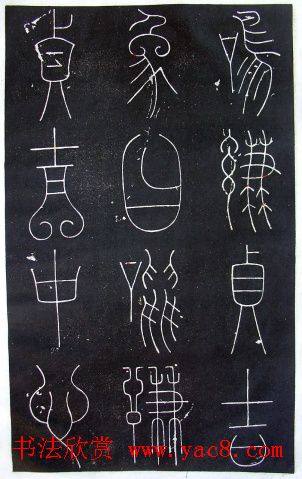 鳴謙貞吉
象曰鳴謙
貞吉中心
书法欣赏 www.yac8.com